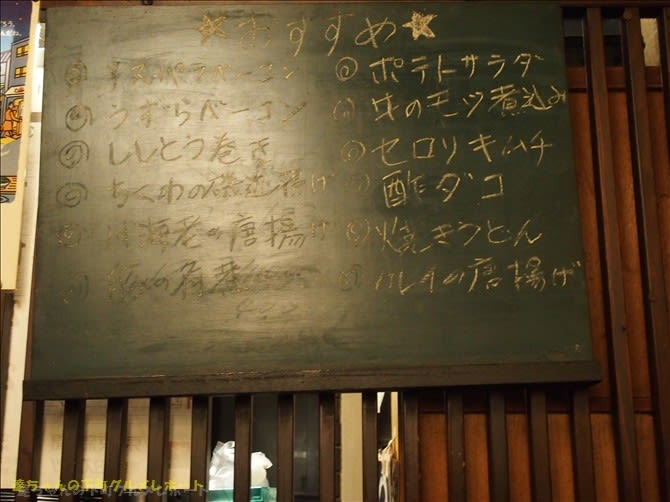 ☆おすすめ☆
◎アスパラベーコン
◎うずらベーコン
◎ししとう巻き
◎ちくわの磯辺揚げ
◎川海老の唐揚げ
◎ポテトサラダ
◎牛のモツ煮込み
◎セロリキムチ
◎酢ダコ
◎焼きうどん
◎カレイの唐揚げ
葵ちゃんの下町グルメレポート